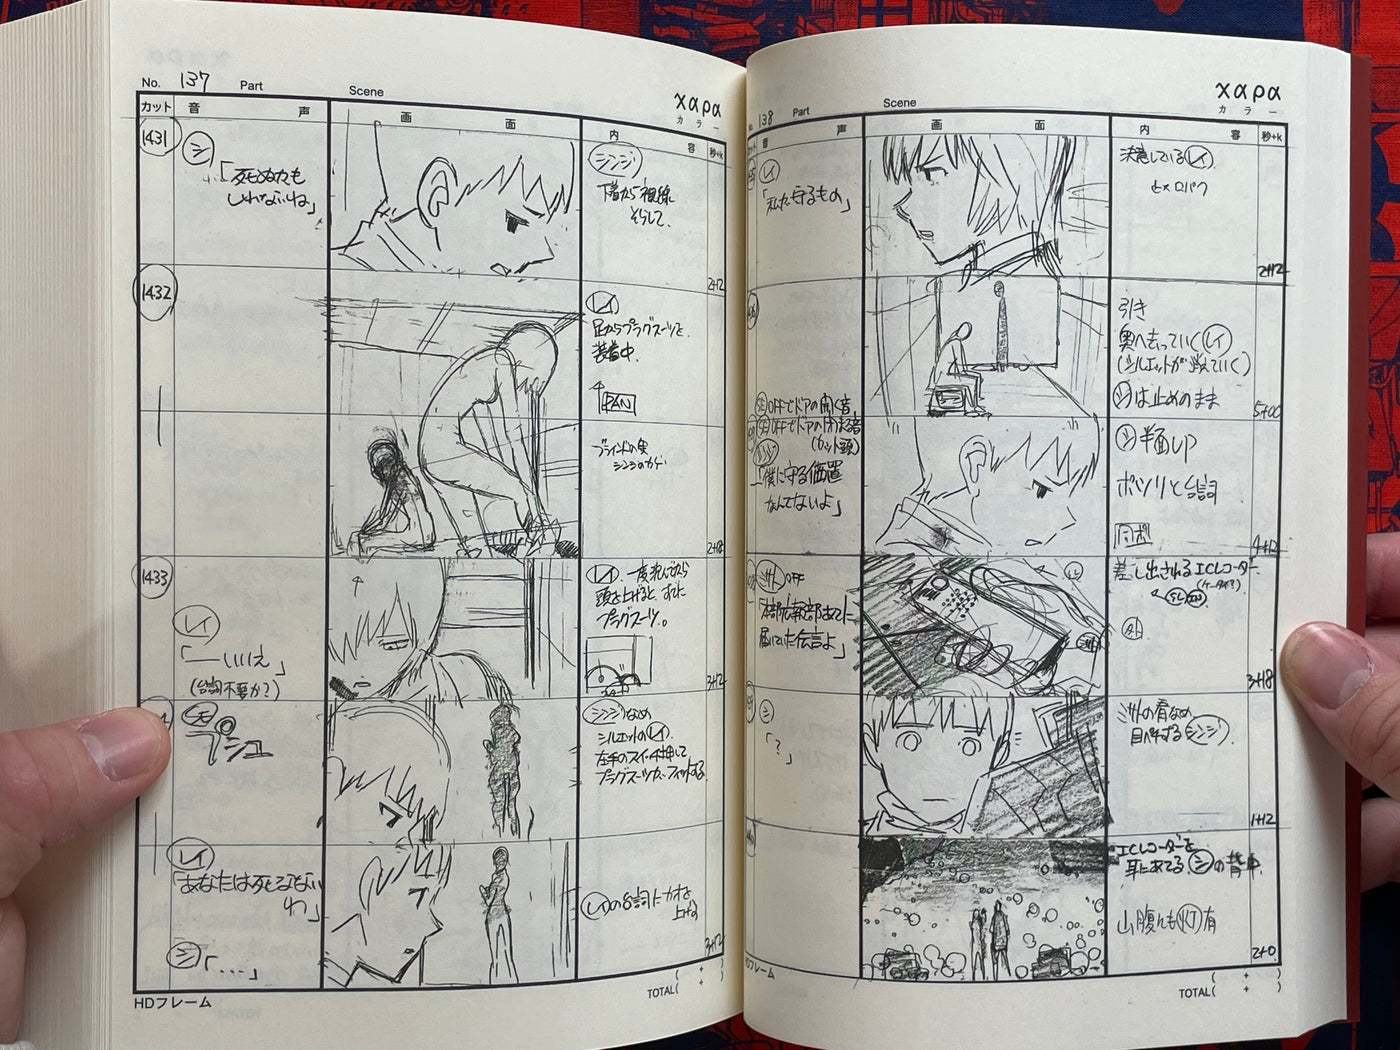 No. 137 Part Scene
χαρα
カラー
カット 音 声 画 面 内 容 秒+k
1431
シ
「死ぬかも
しれないね」
シンジ
下着から視線
そらして
2+12
1432
レイ
足からプラグスーツを
装着中
PAN
ブラインドの奥
シンジのカゲ
2+18
1433
レイ
「―いいえ」
(台詞不要か?)
レイ、一度沈んでから
頭を上げると、すでに
プラグスーツ。
3+12
プシュ
シンジなめ
シルエットのレイ
左手のスイッチ押して
プラグスーツがフィットする
レイ
「あなたは死なない
わ」
シ
「…」
レイの台詞にカオを
上げる
3+12
HDフレーム
TOTAL( + )
138 Part Scene
χαρα
カラー
音 声 画 面 内 容 秒+k
レイ
「私が守るもの」
決意しているレイ
セメロパク
2+12
引き
奥へ去っていくレイ
(シルエットが消えていく)
シは止めのまま
5+00
OFFでドアの開く音
OFFでドアの閉まる音
(カット頭)
シンジ
「僕に守る価値
なんてないよ」
シ 半面UP
ポツリと台詞
同ポ
4+12
ミサトOFF
「本部広報部あてに
届いていた伝言よ」
差し出されるICレコーダー
(ケータイ?)
3+18
シ
「?」
ミサトの肩なめ
目ヘすするシンジ
1+12
ICレコーダーを
耳にあてるシの背中
山腹にも灯有
2+0
HDフレーム
TOTAL( + )